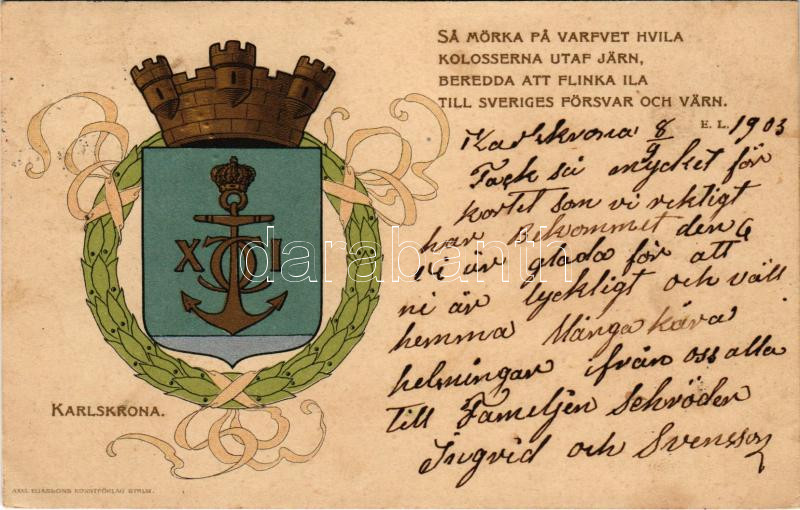 SÅ MÖRKA PÅ VARFVET HVILA
KOLOSSERNA UTAF JÄRN,
BEREDDA ATT FLINKA ILA
TILL SVERIGES FÖRSVAR OCH VÄRN.
E. L.
Karlskrona 8/9 1903
Tack så mycket för
kortet som vi rektigt
har Bekommet den 6
Vi är glada för att
ni är lyckligt och väll
hemma Många kära
helsningar ifrån oss alla
till Fameljen Schröder
Ingrid och Svensson
X C I
KARLSKRONA.
AXEL ELIASSONS KONSTFÖRLAG STHLM.
darabanth